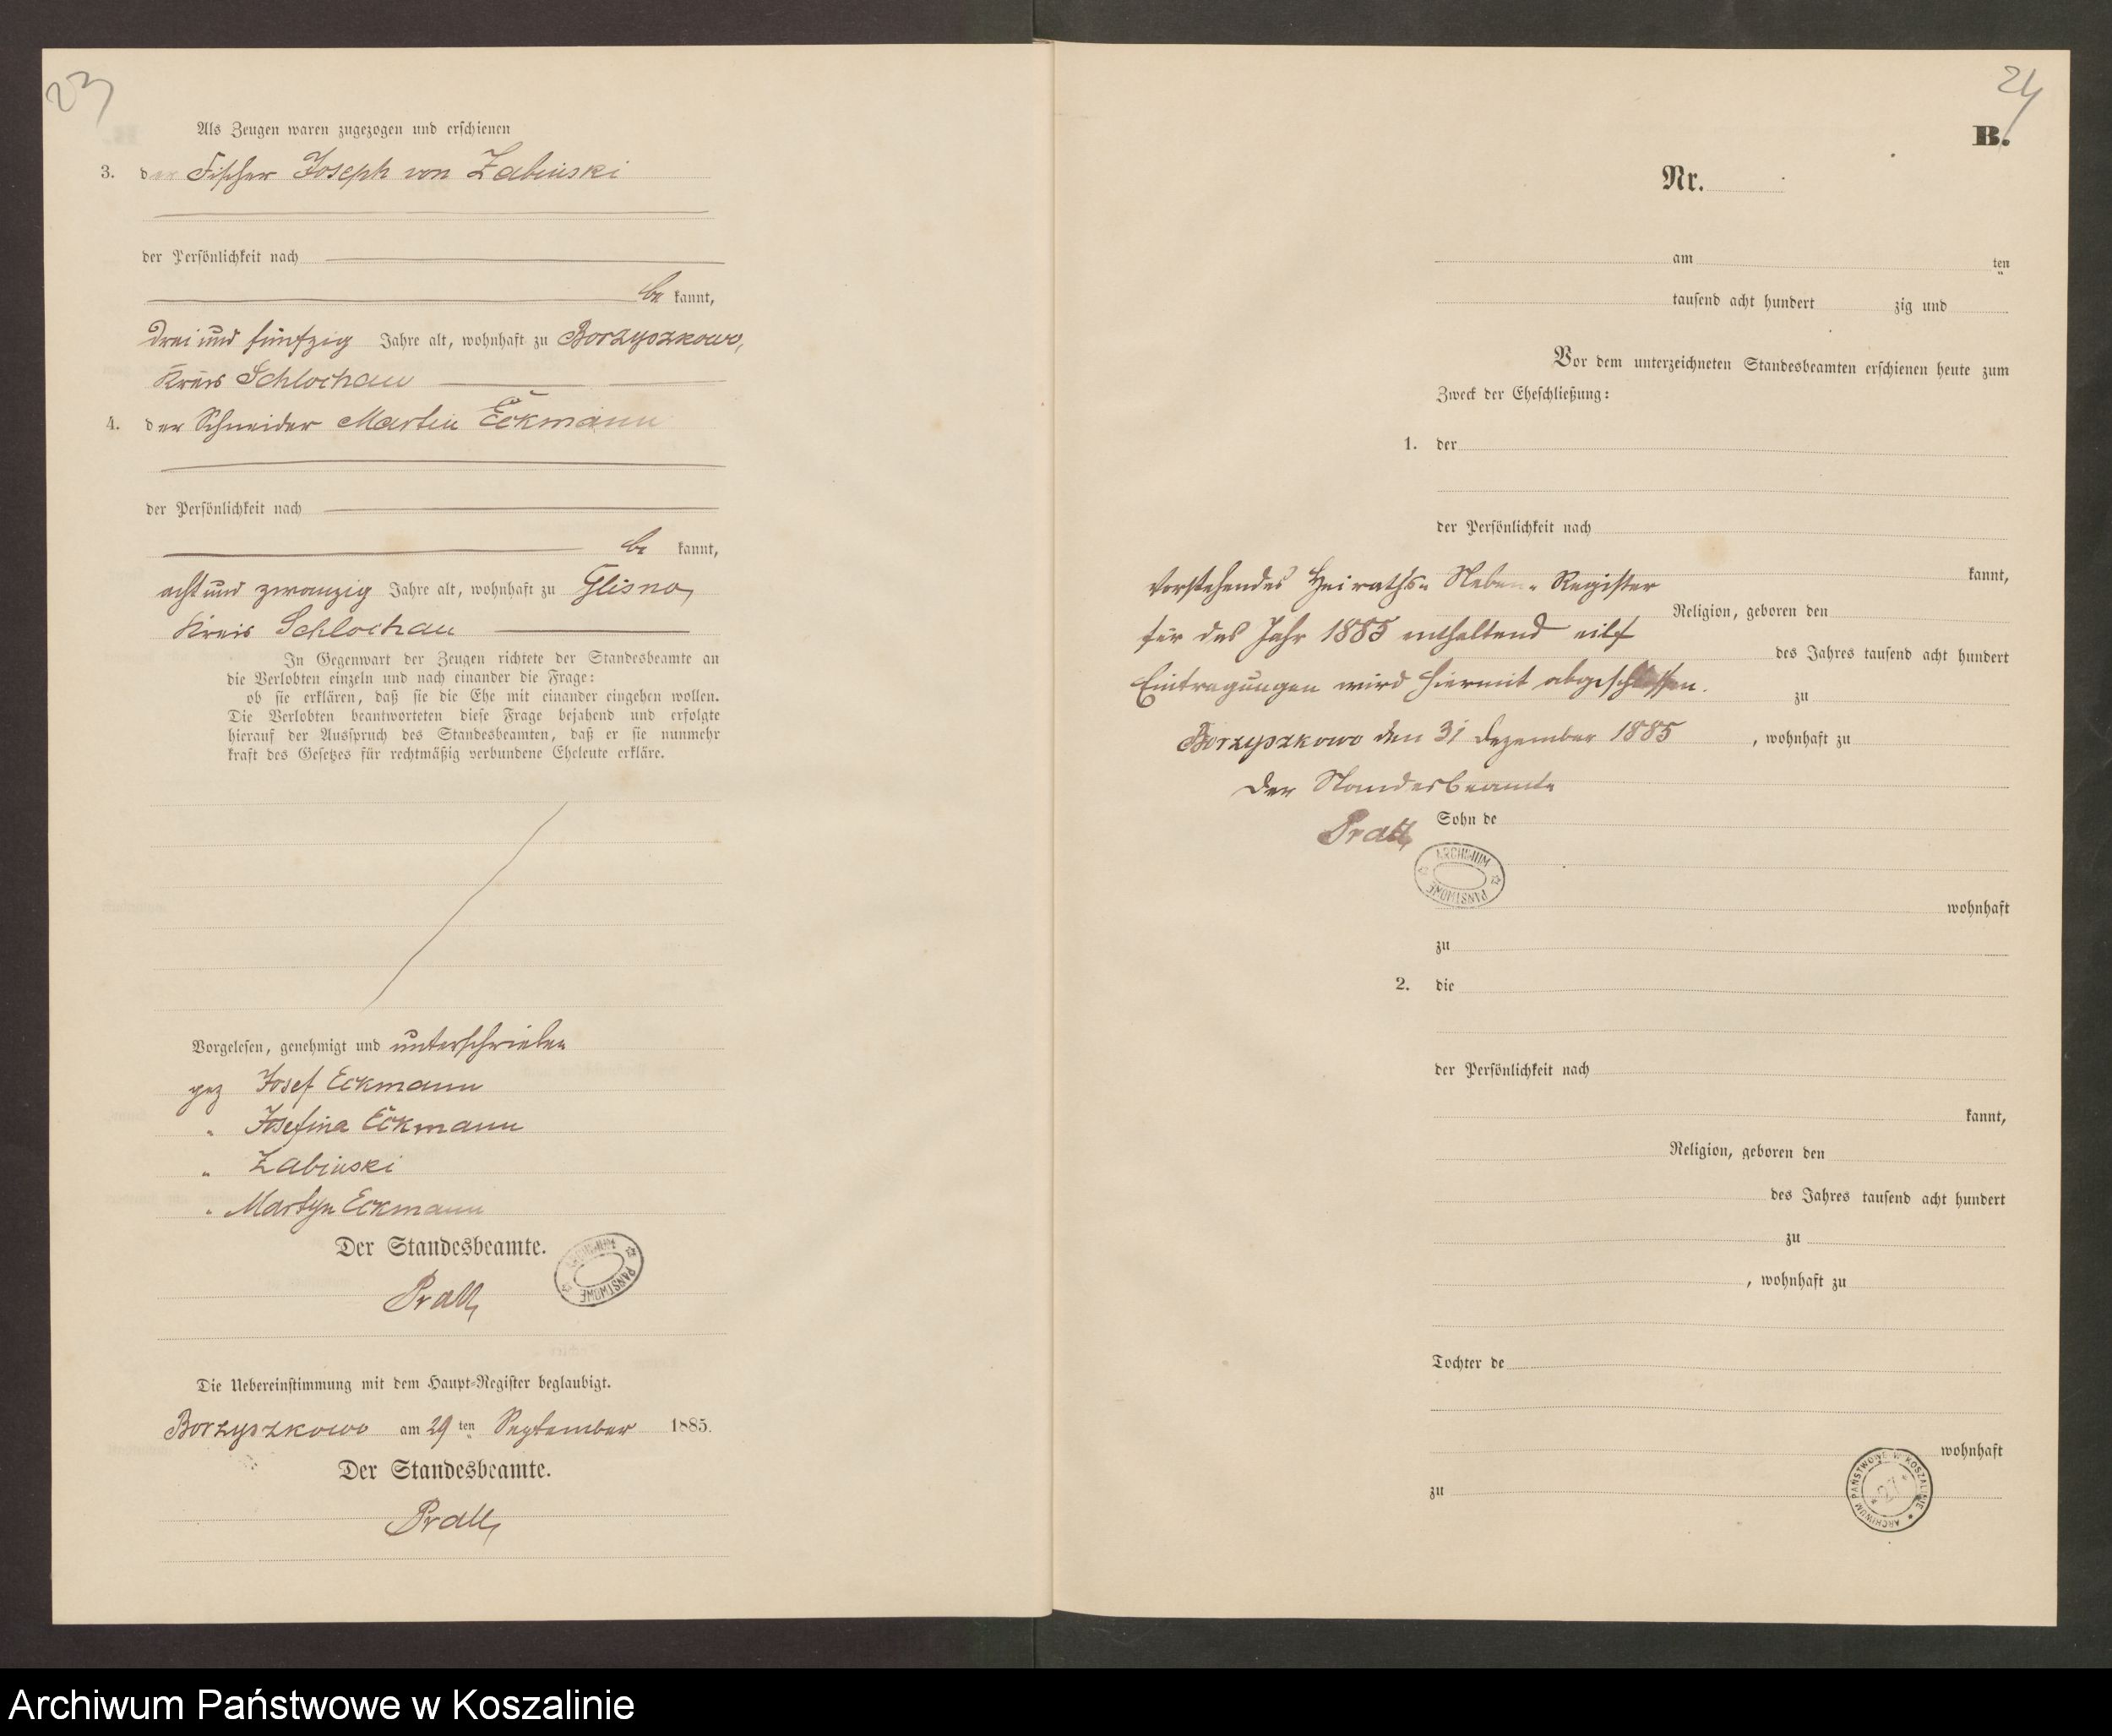 23
Als Zeugen waren zugezogen und erschienen
3. der Fischer Joseph von Zabinski
der Persönlichkeit nach
be kannt,
drei und fünfzig Jahre alt, wohnhaft zu Borzyszkowo,
Kreis Schlochau
4. der Schneider Martin Eckmann
der Persönlichkeit nach
be kannt,
acht und zwanzig Jahre alt, wohnhaft zu Glisno,
Kreis Schlochau
In Gegenwart der Zeugen richtete der Standesbeamte an
die Verlobten einzeln und nach einander die Frage:
ob sie erklären, daß sie die Ehe mit einander eingehen wollen.
Die Verlobten beantworteten diese Frage bejahend und erfolgte
hierauf der Ausspruch des Standesbeamten, daß er sie nunmehr
kraft des Gesetzes für rechtmäßig verbundene Eheleute erkläre.
Vorgelesen, genehmigt und unterschrieben
gez Josef Eckmann
" Josefina Eckmann
" Zabinski
" Martyn Eckmann
Der Standesbeamte.
ARCHIWUM PAŃSTWOWE
Prall
Die Uebereinstimmung mit dem Haupt-Register beglaubigt.
Borzyszkowo am 29 ten September 1885.
Der Standesbeamte.
Prall
24
B.
Nr.
am ten
tausend acht hundert zig und
Vor dem unterzeichneten Standesbeamten erschienen heute zum
Zweck der Eheschließung:
1. der
der Persönlichkeit nach
kannt,
Vorstehendes Heiraths- Neben- Register
Religion, geboren den
für das Jahr 1885 enthaltend eilf
des Jahres tausend acht hundert
Eintragungen wird hiermit abgeschlossen.
zu
Borzyszkowo den 31 Dezember 1885
, wohnhaft zu
Der Standesbeamte
Prall
Sohn de
ARCHIWUM PAŃSTWOWE
wohnhaft
zu
2. die
der Persönlichkeit nach
kannt,
Religion, geboren den
des Jahres tausend acht hundert
zu
, wohnhaft zu
Tochter de
wohnhaft
zu
ARCHIWUM PAŃSTWOWE W KOSZALINIE
27
Archiwum Państwowe w Koszalinie